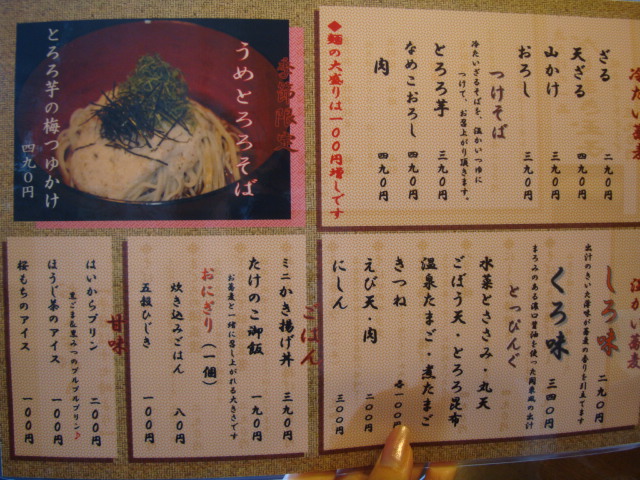 冷たい蕎麦
ざる 二九〇円
天ざる 四九〇円
山かけ 三九〇円
おろし 三九〇円
つけそば
冷たいざるそばを、温かいつゆに
つけて、お召上がり頂きます。
とろろ芋 三九〇円
なめこおろし 四九〇円
肉 四九〇円
◆麺の大盛りは一〇〇円増しです
季節限定
うめとろろそば
とろろ芋の梅つゆかけ
四九〇円
温かい蕎麦
しろ味 二九〇円
出汁のきいた薄味が蕎麦の香りを引立てます
くろ味 三四〇円
まろみのある濃口醤油を使った関東風の出汁
とっぴんぐ
水菜とささみ・丸天
ごぼう天・とろろ昆布
温泉たまご・煮たまご
きつね 各一〇〇円
えび天・肉 二〇〇円
にしん 三〇〇円
ごはん
ミニかき揚げ丼 三九〇円
たけのこ御飯 一九〇円
お蕎麦と一緒に召し上がれる大きさです
おにぎり(一個)
炊き込みごはん 八〇円
五穀ひじき 一〇〇円
甘味
はいからプリン 二〇〇円
黒ごま&黒みつのプルプルプリン♪
ほうじ茶のアイス 一〇〇円
桜もちのアイス 一〇〇円